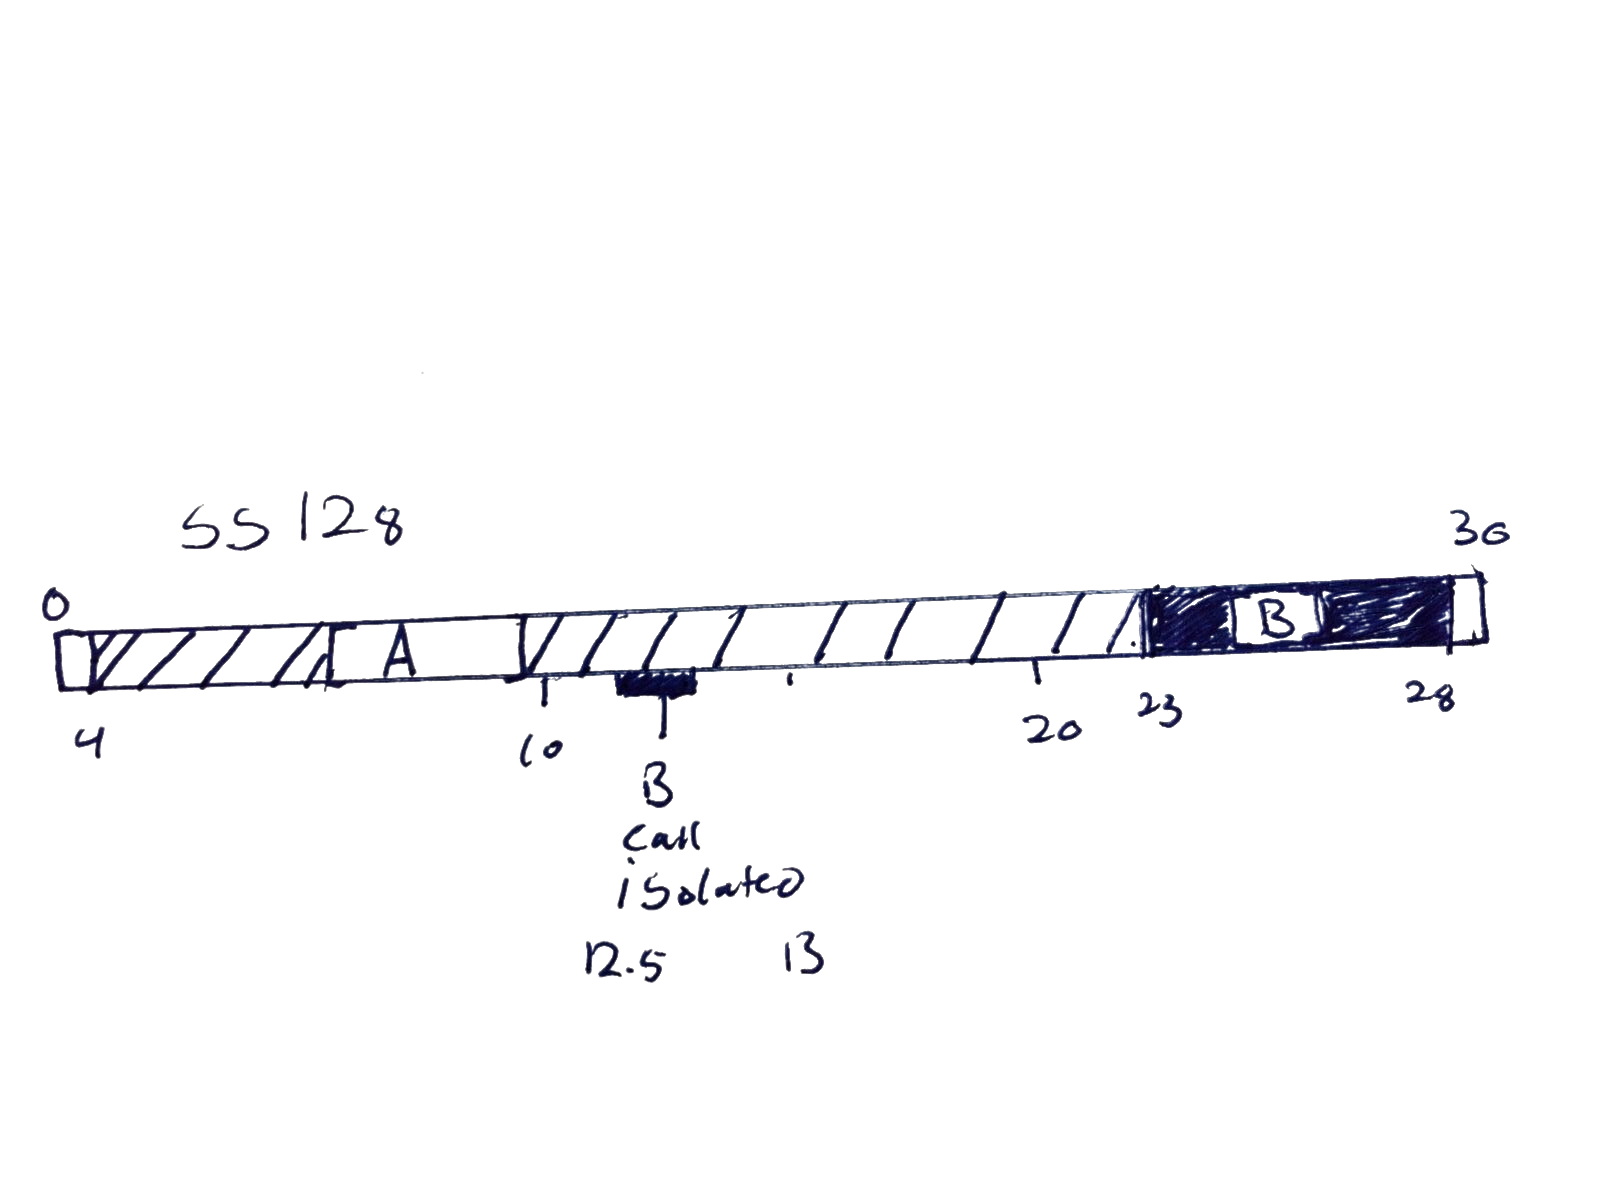 SS 128
0
30
A
B
4
10
20
23
28
B
call
isolated
12.5 13